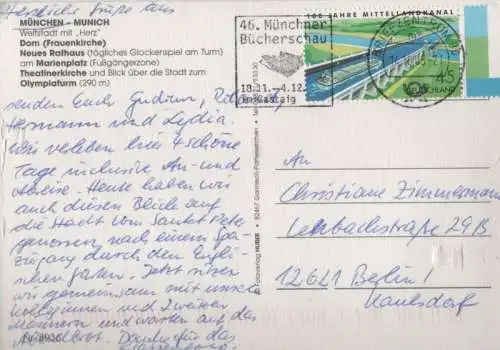 Herzliche Grüße aus
MÜNCHEN – MUNICH
Weltstadt mit „Herz"
Dom (Frauenkirche)
Neues Rathaus (tögliches Glockenspiel am Turm)
am Marienplatz (Fußgängerzone)
Theatinerkirche und Blick über die Stadt zum
Olympiaturm (290 m)
senden Euch Gudrun,
Hermann und Lydia.
Wir verleben hier 4 schöne
Tage inclusive An- und
Abreise. Heute haben wir
auch diesen Blick auf
die Stadt vom Sankt Peter
genossen, nach einem Spa-
ziergang durch den Engli-
schen Garten. Jetzt sitzen
wir gemeinsam mit unseren
Kolleginnen und 2 weiteren
Männern und warten auf das
Abendbrot. Danke für das
46. Münchner
Bücherschau
18.11.-4.12.
im Gasteig
100 JAHRE MITTELLANDKANAL
BRIEFZENTRUM
45
DEUTSCHLAND
Fotoverlag HUBER · 82467 Garmisch-Partenkirchen
An
Christiane Zimmermann
Lenbachstraße 29B
12621 Berlin
Kaulsdorf